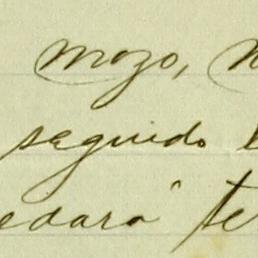 mozo,
seguido
edara" te